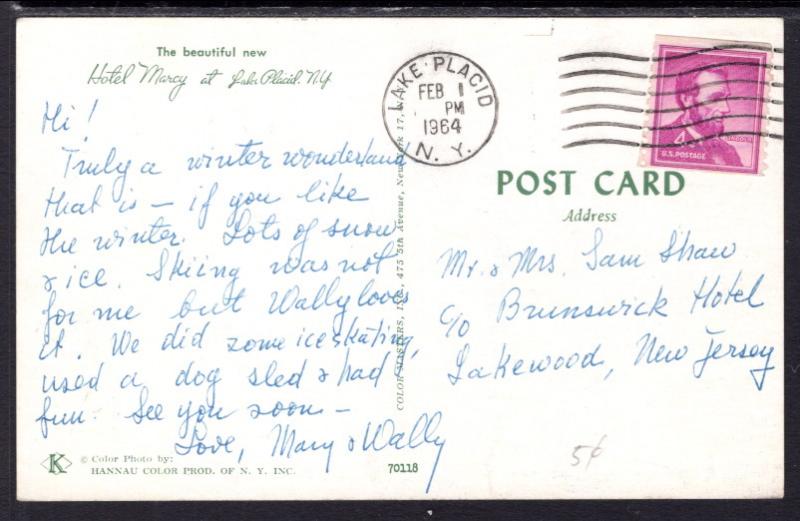 The beautiful new
Hotel Marcy at Lake Placid, N.Y.
Hi!
Truly a winter wonderland
that is — if you like
the winter. Lots of snow
& ice. Skiing was not
for me but Wally loves
it. We did some ice skating,
used a dog sled & had
fun. See you soon —
Love, Mary & Wally
© Color Photo by:
HANNAU COLOR PROD. OF N. Y. INC.
K
70118
COLOR MASTERS, INC., 475 5th Avenue, New York 17, N.Y.
LAKE PLACID
FEB 1
PM
1964
N. Y.
4
LINCOLN
U.S. POSTAGE
POST CARD
Address
Mr. & Mrs. Sam Shaw
c/o Brunswick Hotel
Lakewood, New Jersey
5¢